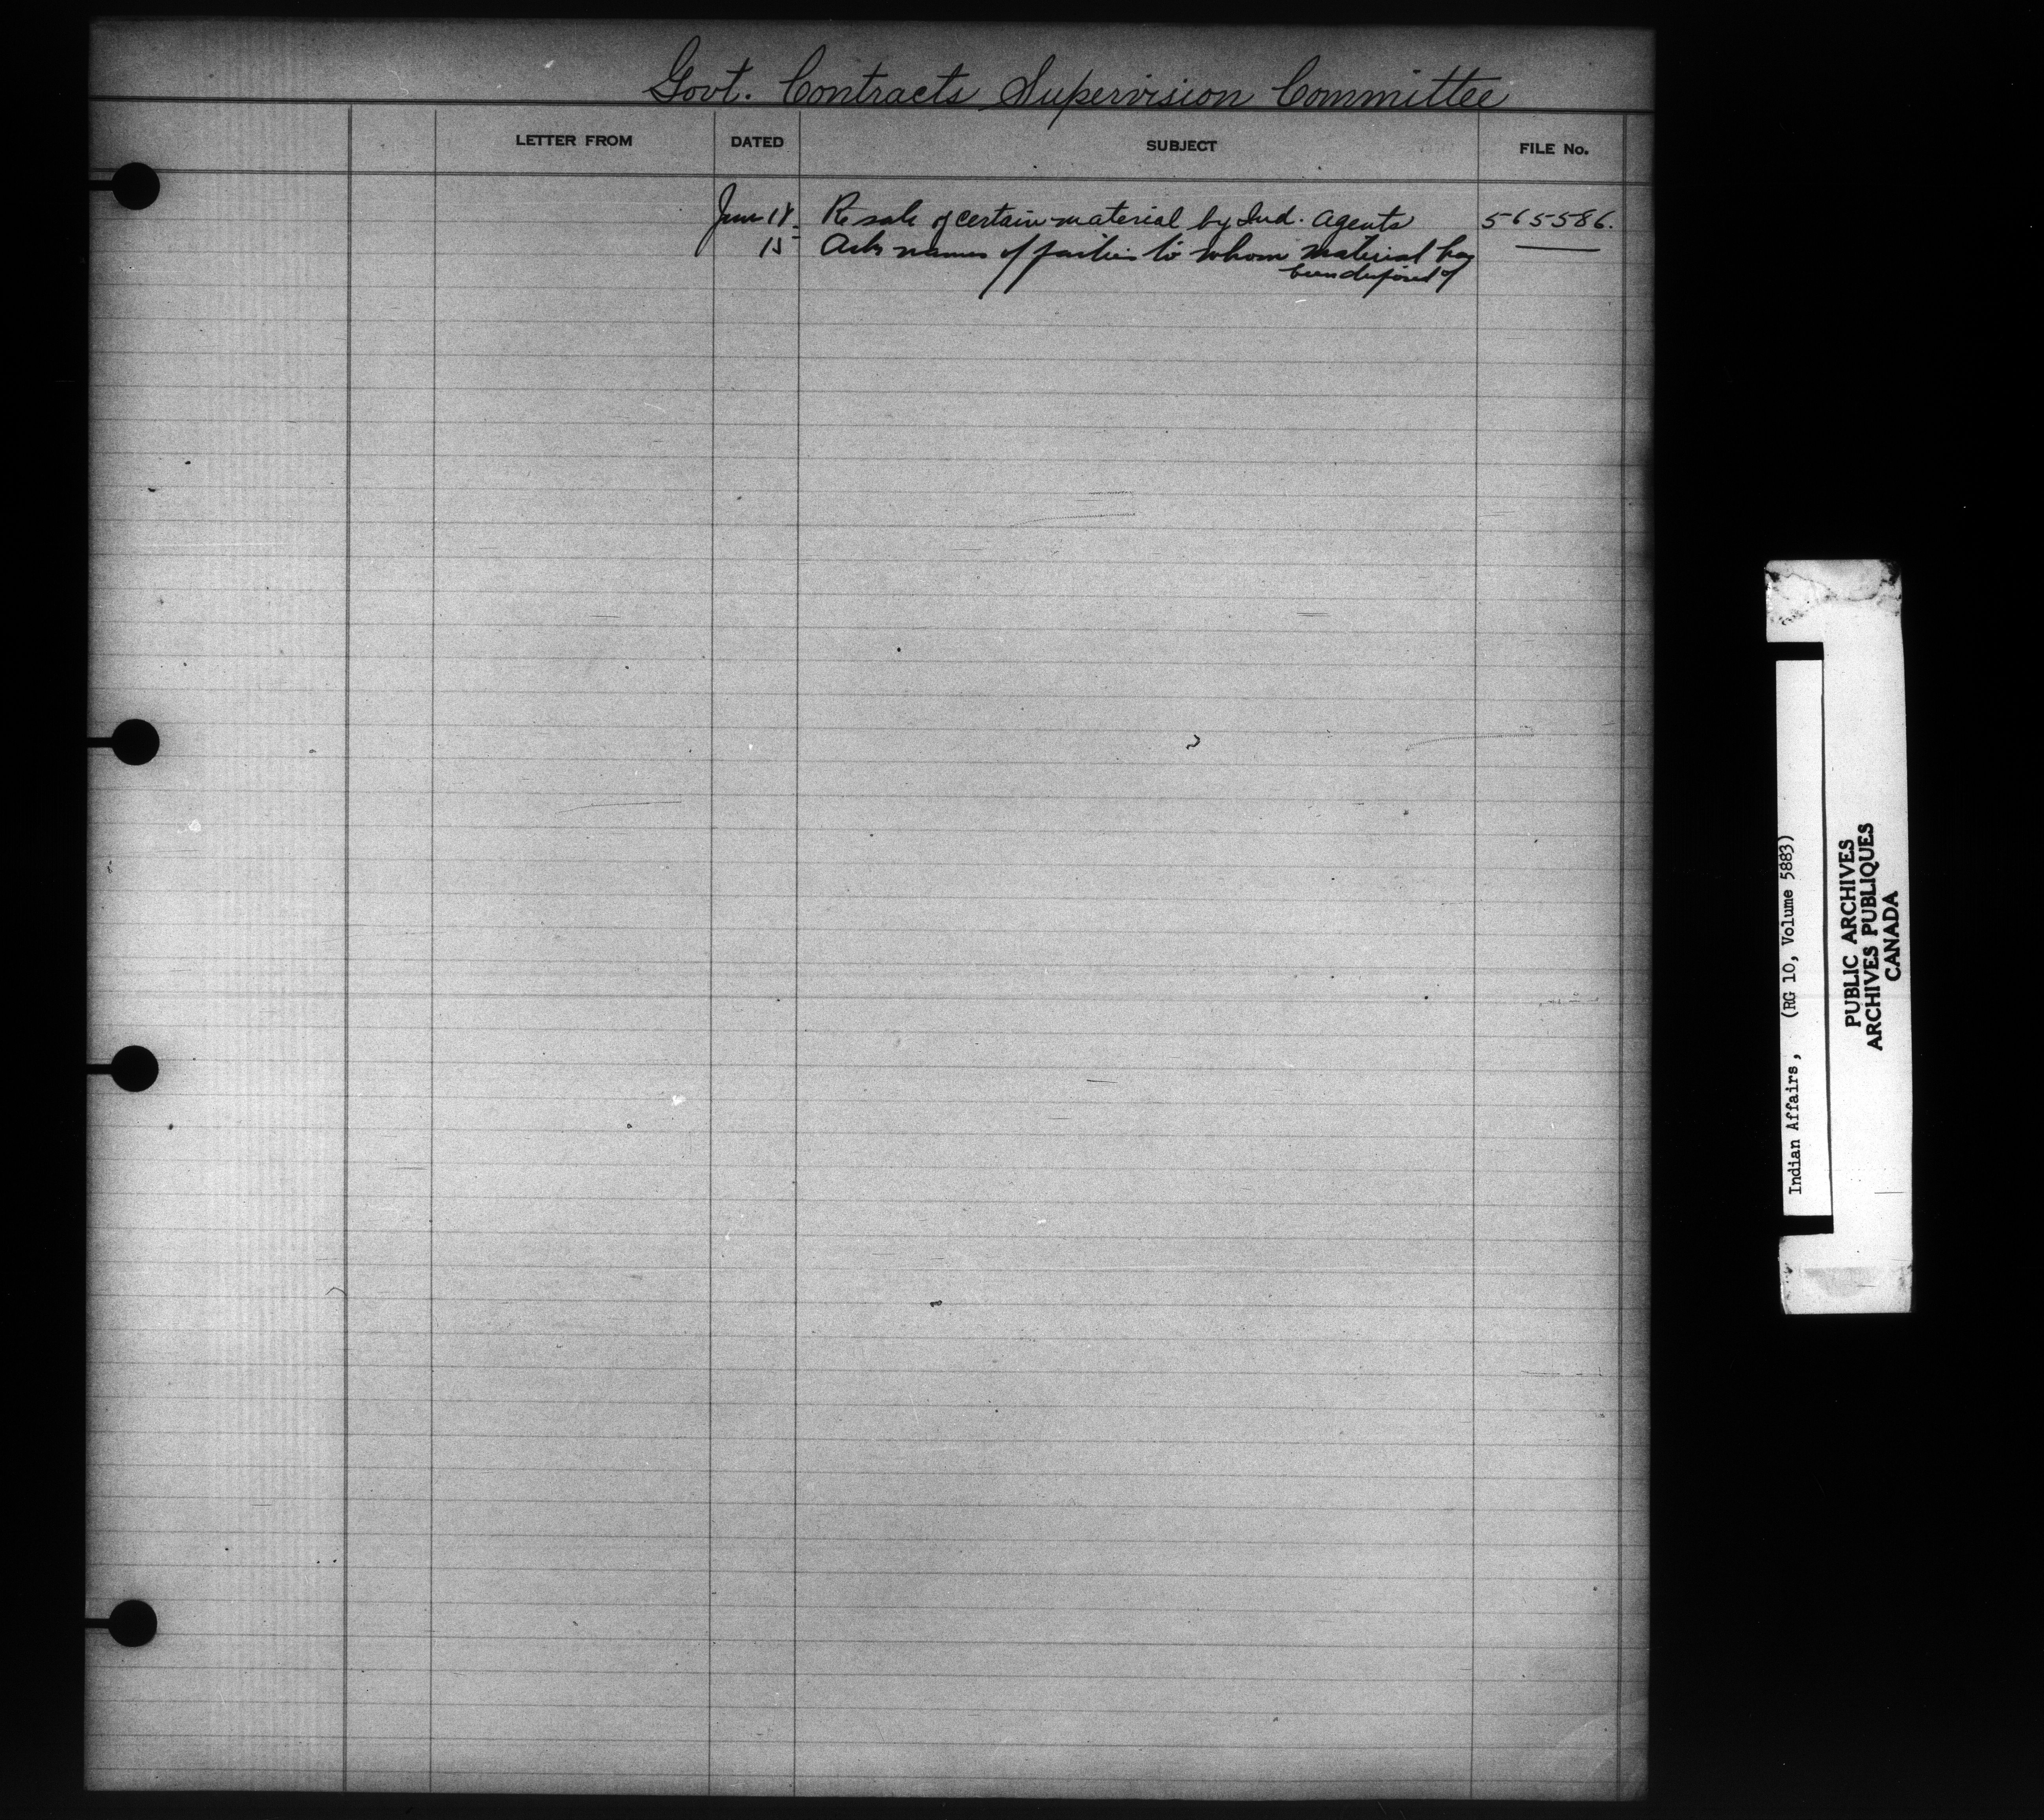 Govt. Contracts Supervision Committee
LETTER FROM DATED SUBJECT FILE No.
June Re sale of certain material by Ind. Agents 565586.
15 Asks names of parties to whom material has
been disposed of
Indian Affairs, (RG 10, Volume 5883)
PUBLIC ARCHIVES
ARCHIVES PUBLIQUES
CANADA